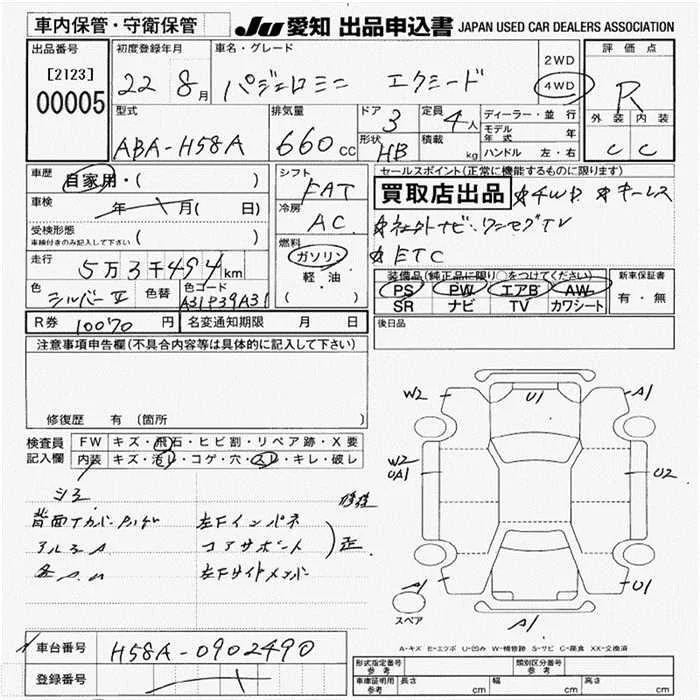 車内保管・守衛保管
JU 愛知 出品申込書 JAPAN USED CAR DEALERS ASSOCIATION
出品番号
[2123]
00005
初度登録年月
22 8月
車名・グレード
パジェロミニ エクシード
2WD
4WD
評価点
R
外装 内装
C C
型式
ABA-H58A
排気量
660cc
ドア 3
形状 HB
定員 4人
積載 kg
ディーラー・並行
モデル年式 年
ハンドル 左・右
車歴 自家用・( )
車検 年 月( 日)
受検形態
車検付きのみ記入して下さい ( )
走行 5万3千494km
色 シルバーII 色替
色コード A31P39A31
シフト FAT
冷房 AC
燃料 ガソリン
軽・油
( )
セールスポイント(正常に機能するものに限ります)
買取店出品 ☆4WD ☆キーレス
☆ネットナビ・ワンセグTV
☆ETC
装備品(純正品に限り○をつけてください)
PS PW エアB AW
SR ナビ TV カワシート
新車保証書
有・無
R券 10070円
名変通知期限 月 日
後日品
注意事項申告欄(不具合内容等は具体的に記入して下さい)
修復歴 有 (箇所 )
検査員
記入欄
FW キズ・飛石・ヒビ割・リペア跡・X要
内装 キズ・汚レ・コゲ・穴・スレ・キレ・破レ
背面
左Fインパネ
コアサポート
左Fサイドメンバ
W2
U1
A1
W2
UA1
U2
A1
U1
A1
スペア
A-キズ E-エクボ U-凹み W-補修跡 S-サビ C-腐食 XX-交換済
車台番号 H58A-0902490
登録番号
形式指定番号
参考
類別区分番号
参考
車庫証明用
参考
長さ cm 幅 cm 高さ cm